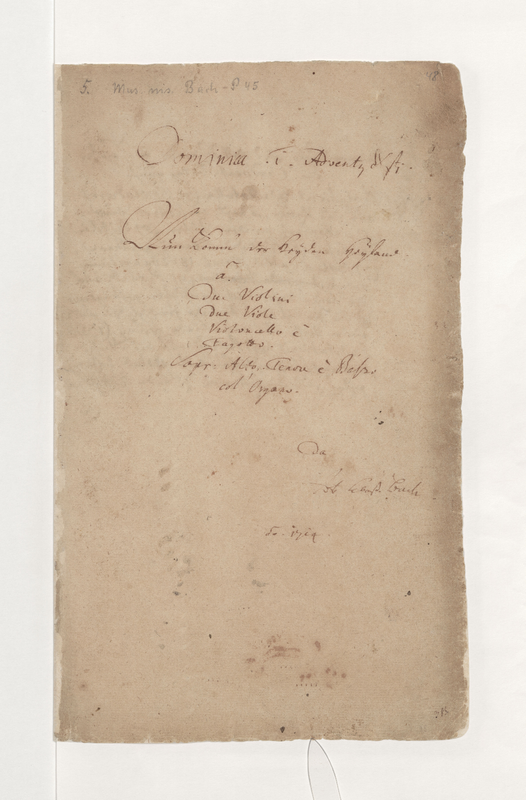 5. Mus. ms. Bach P 45
Dominica I. Adventus Xsti.
Nun Komm der Heyden Heyland.
à.
Due Violini
due Viole
Violoncello è
Fagotto.
Sopr: Alto. Tenore è Basso
col Organo.
Da
Joh. Sebast. Bach
1714.